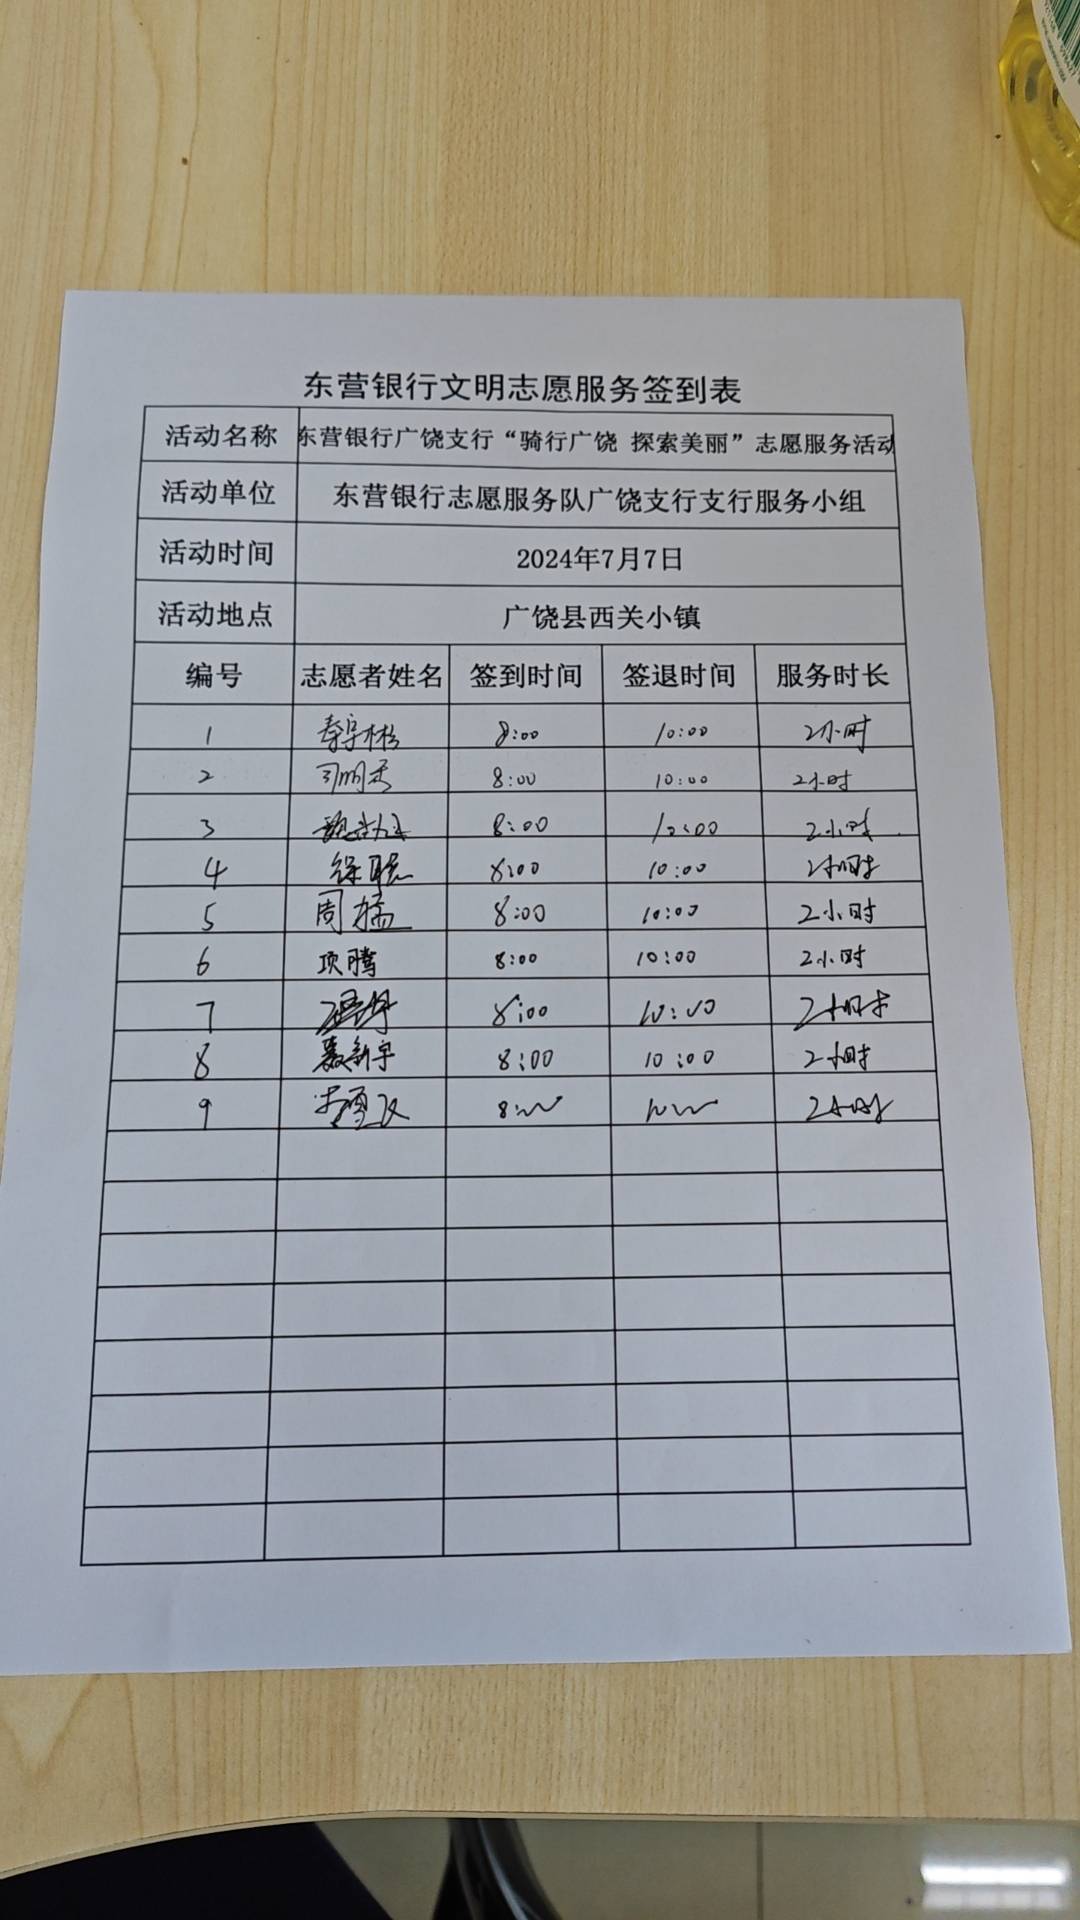 东营银行文明志愿服务签到表
活动名称 东营银行广饶支行“骑行广饶 探索美丽”志愿服务活动
活动单位 东营银行志愿服务队广饶支行支行服务小组
活动时间 2024年7月7日
活动地点 广饶县西关小镇
编号 志愿者姓名 签到时间 签退时间 服务时长
1 8:00 10:00 2小时
2 8:00 10:00 2小时
3 8:00 10:00 2小时
4 8:00 10:00 2小时
5 周猛 8:00 10:00 2小时
6 项腾 8:00 10:00 2小时
7 8:00 10:00 2小时
8 聂新宇 8:00 10:00 2小时
9 2小时